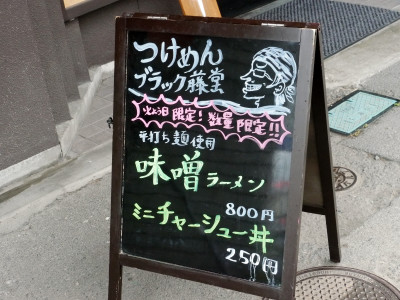 つけめん
ブラック藤堂
火よう日限定!数量限定!!!
手打ち麺使用
味噌ラーメン
800円
ミニチャーシュー丼
250円